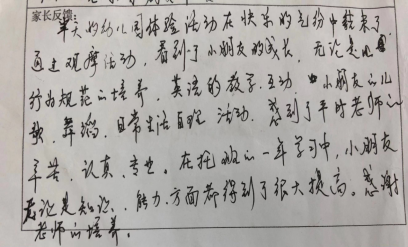 家长反馈:
半天的幼儿园体验活动在快乐的气份中结束了
通过观摩活动,看到了小朋友的成长,无论是
行为规范的培养,英语的教学、互动、小朋友的儿
歌、舞蹈、日常生活自理活动,感到了平时老师的
辛苦、认真、专业。在托班的一年学习中,小朋友
无论是知识、能力、方面都得到了很大提高。感谢
老师的培养。